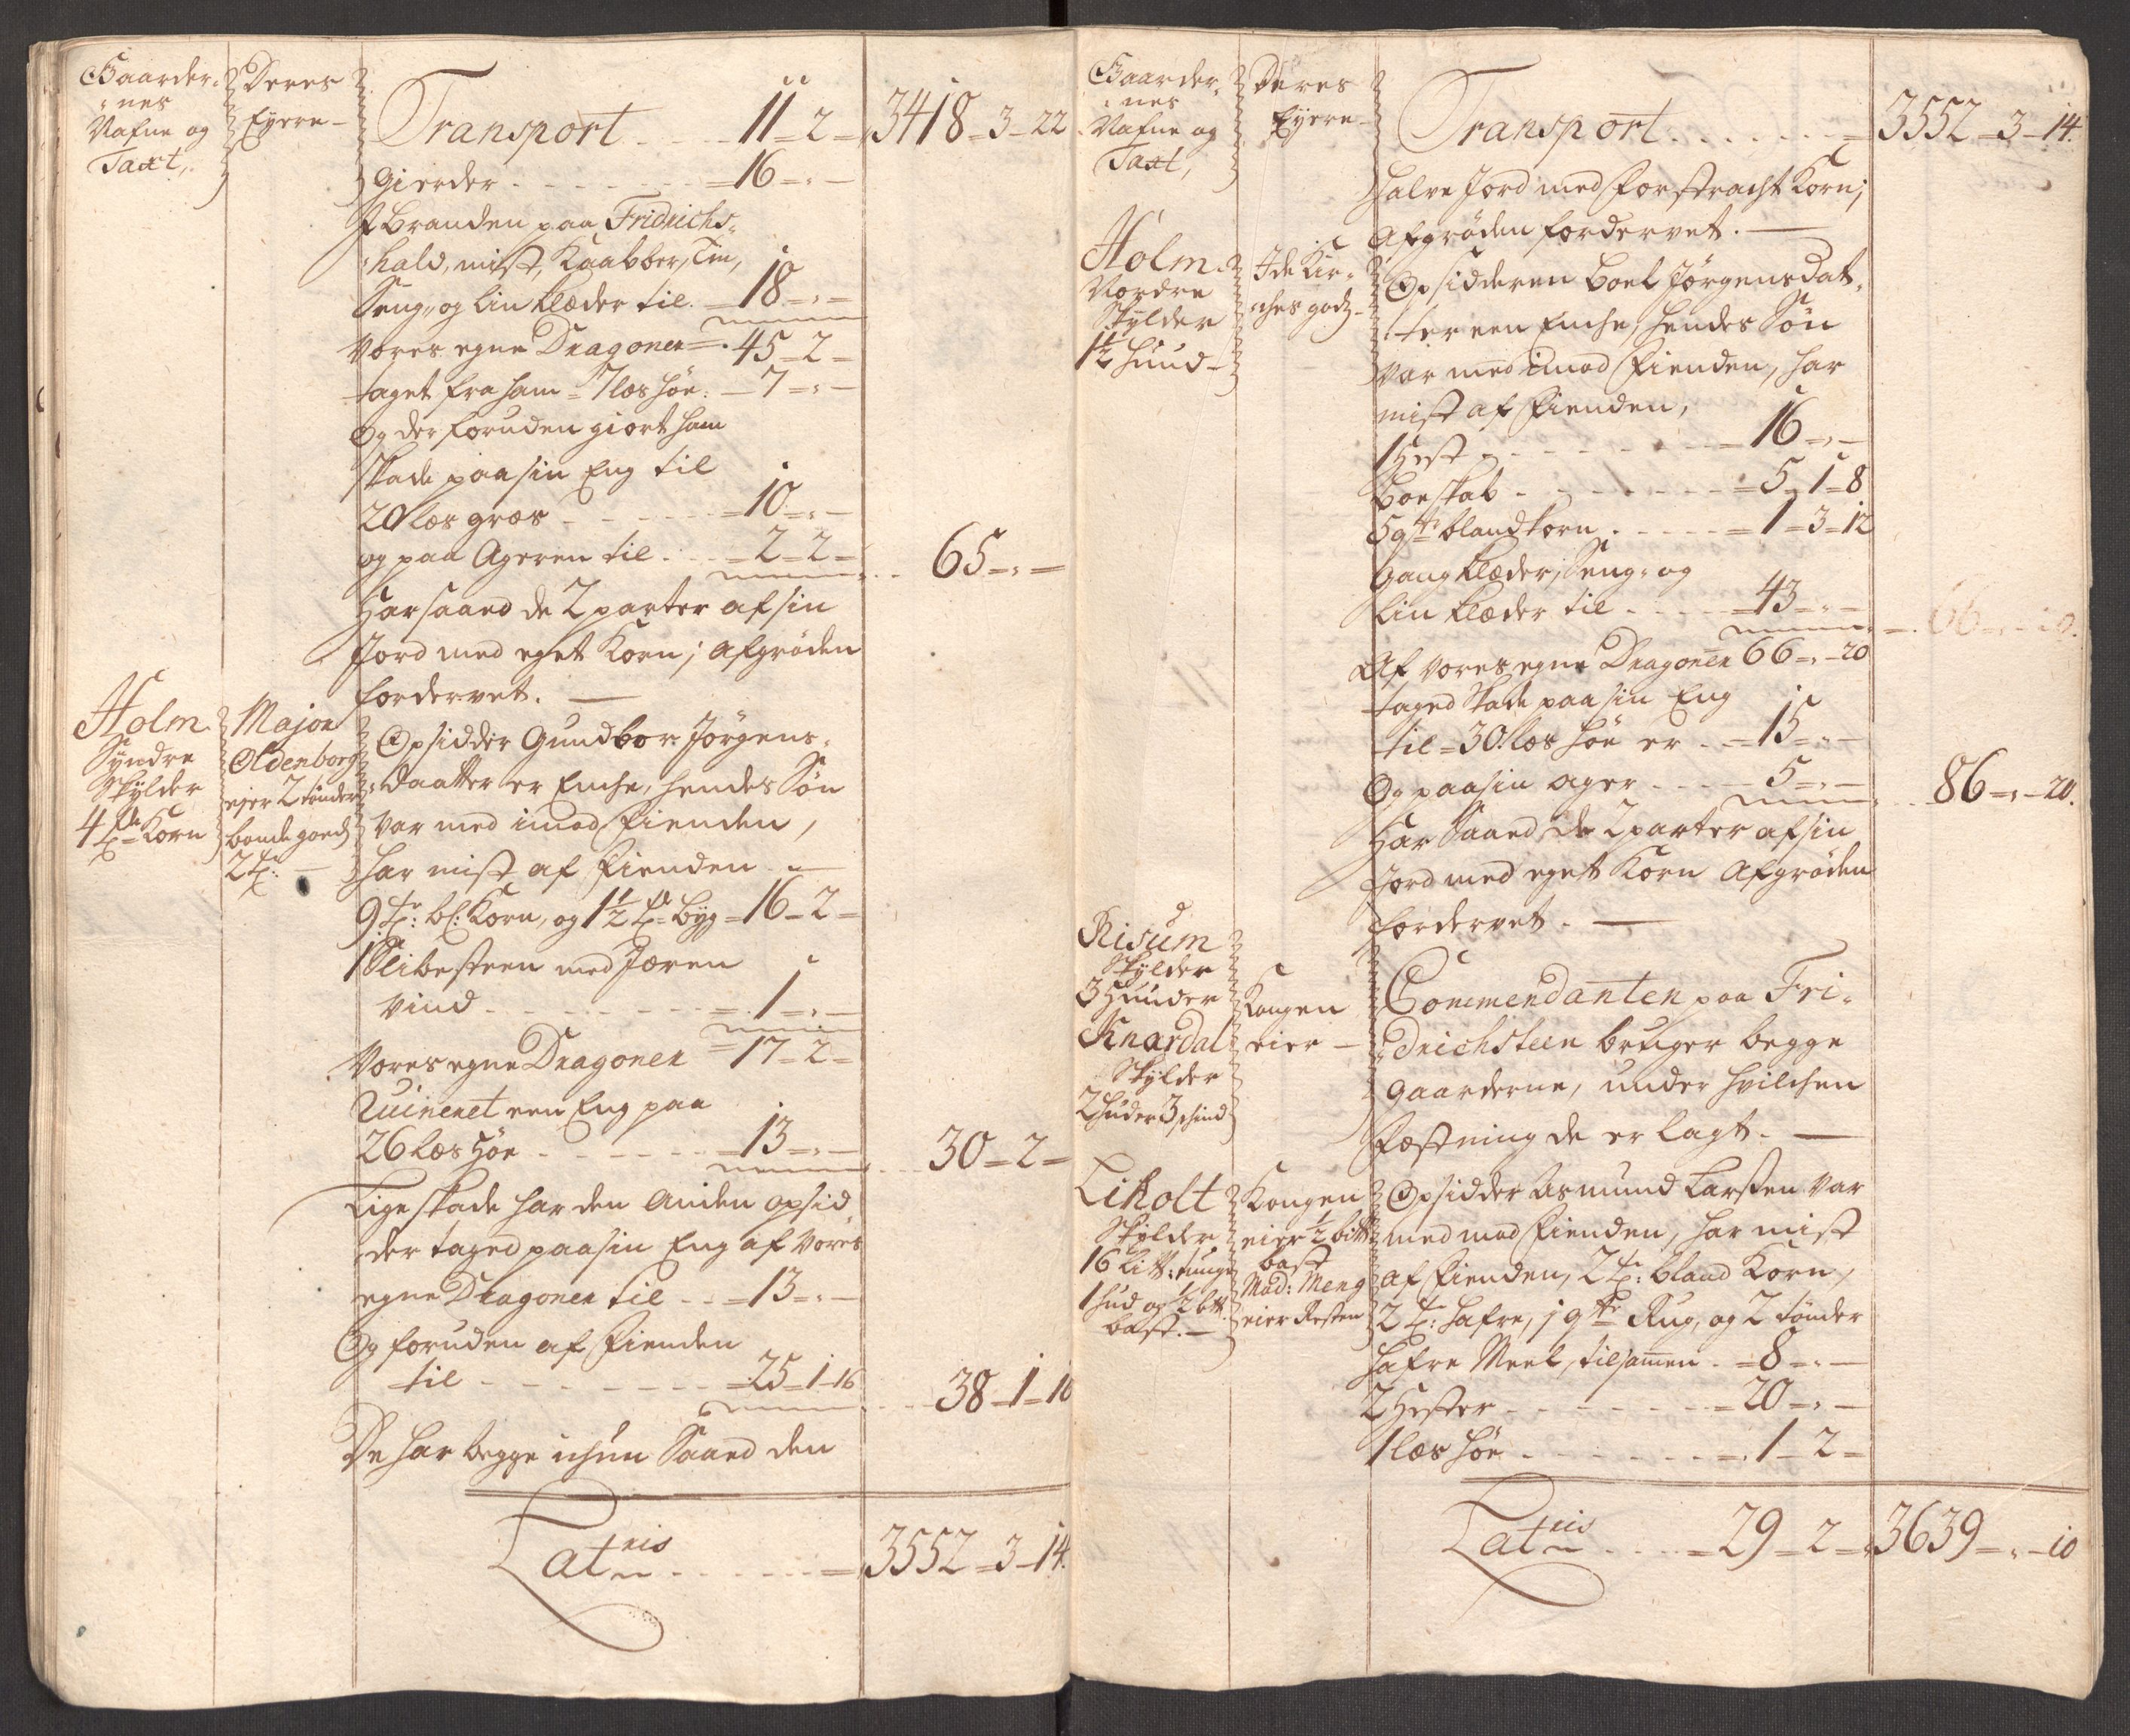 Gaarder-
nes
Nafne og
Taxt,
Deres
Eyere
Transport 11-2- 3418-3-22
Gierder 16-"-
J Branden paa Fridrichs-
hald, mist, Kaabber, Tin,
Seng, og Lin klæder til 18-"-
Vores egne Dragoner 45-2-
taget fra ham 7 læs Høe 7-"-
Og der foruden giort ham
skade paa sin Eng til
20 læs græs 10-"-
og paa Ageren til 2-2- 65-"-
Har saaed de 2 parter af sin
Jord med eget Korn; Afgröden
fordervet.
Holm
Syndre
Skylder
4 Korn
Major
Oldenborg
ejer 2 tönder
bonde goeds
2
Opsidder Gundbor Jörgens-
daatter er Enche, hendes Sön
Var med imod Fienden,
har mist af Fienden
9 bl: Korn, og 1½ Byg 16-2-
1 Slibesteen med Jæren
Vind 1-"-
Vores egne Dragoner 17-2-
Ruineret een Eng paa
26 læs Höe 13-"- 30-2-
Lige skade har den Anden opsid-
der taged paa sin Eng af Vores
egne Dragoner til 13-"-
Og foruden af Fienden
til 25-1-16 38-1-16
De har begge ichun Saaed den
Lateris 3552-3-14.
Gaarder-
nes
Nafne og
Taxt,
Deres
Eyere
Transport 3552-3-14.
halve Jord med Forstracht Korn;
Afgröden fordervet.
Holm
Nordre
Skylder
1½ Huud
Jde Kir-
ches godz
Opsidderen Boel Jørgensdat-
ter een Enche, hendes Sön
Var med imod Fienden, har
mist af Fienden,
1 Hest 16-"-
Boeskab 5-1-8
5 qtr blandkorn 1-3-12
Gangklæder, Seng- og
Lin klæder til 43-"-
66-"-20.
Af Vores egne Dragoner 66-"-20
taged Skade paa sin Eng
til 30 læs höe er 15-"-
Og paa sin ager 5-"- 86-"-20.
Har Saaed de 2 parter af sin
Jord med eget Korn Afgröden
fordervet.
Risum
Skylder
3 Huuder
Knardal
Skylder
2 Huder 3 schind
Kongen
eier
Commendanten paa Fri-
drichsteen bruger begge
gaarderne, under hvilchen
Fæstning de er lagt.
Liholt
Skylder
16 Litt: tunge
1 hud og ½ btt
bast.
Kongen
eier ½ bitt
bast
Mad: Meng
eier Resten
Opsidder Asmund Larsen Var
med mod Fienden, har mist
af Fienden, 2 bland Korn,
2 Hafre, 1 qtr Rug, og 2 tönder
Hafre Meel, tilsamen 8-"-
2 Hester 20-"-
1 læs höe 1-2-
Lateris 29-2- 3639-"-10